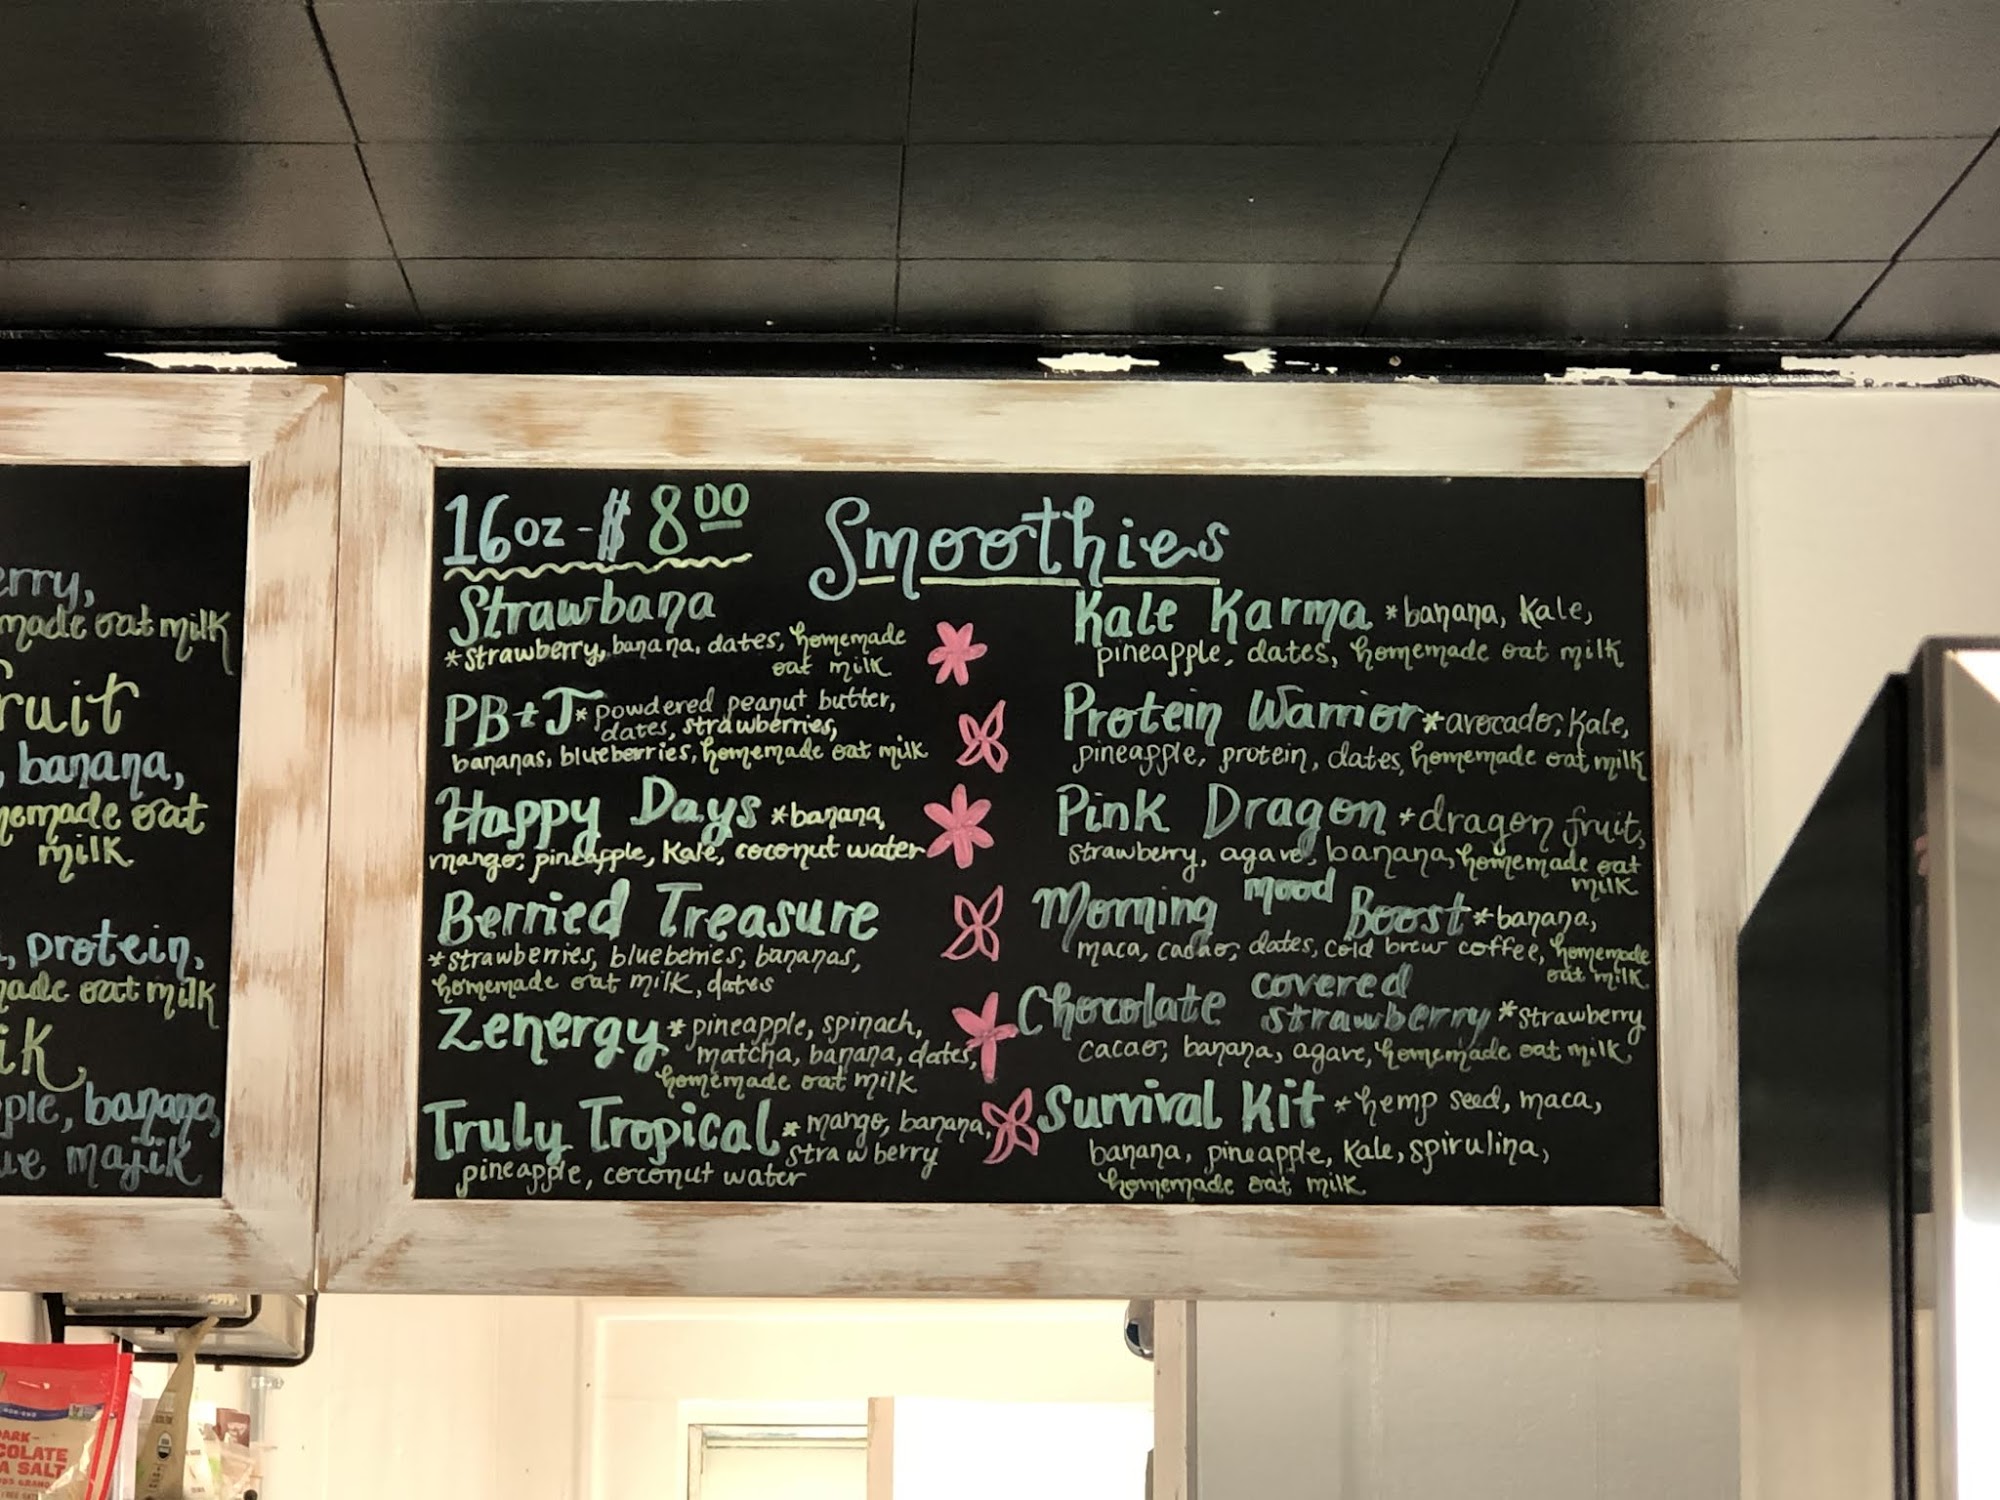 erry,
made oat milk
ruit
, banana,
emade oat
milk
, protein,
ade oat milk
ple, banana,
ue majik
16oz - $8.00
Smoothies
Strawbana
*strawberry, banana, dates, homemade
oat milk
PB+J *powdered peanut butter,
dates, strawberries,
bananas, blueberries, homemade oat milk
Happy Days *banana,
mango, pineapple, Kale, coconut water
Berried Treasure
*strawberries, blueberries, bananas,
homemade oat milk, dates
Zenergy *pineapple, spinach,
matcha, banana, dates,
homemade oat milk
Truly Tropical *mango, banana,
strawberry
pineapple, coconut water
Kale Karma *banana, Kale,
pineapple, dates, homemade oat milk
Protein Warrior *avocado, Kale,
pineapple, protein, dates, homemade oat milk
Pink Dragon *dragon fruit,
strawberry, agave, banana, homemade oat
milk
Morning mood Boost *banana,
maca, cacao, dates, cold brew coffee, homemade
oat milk
Chocolate covered
strawberry *strawberry
cacao, banana, agave, homemade oat milk
Survival Kit *hemp seed, maca,
banana, pineapple, Kale, spirulina,
homemade oat milk
DARK
COLATE
A SALT